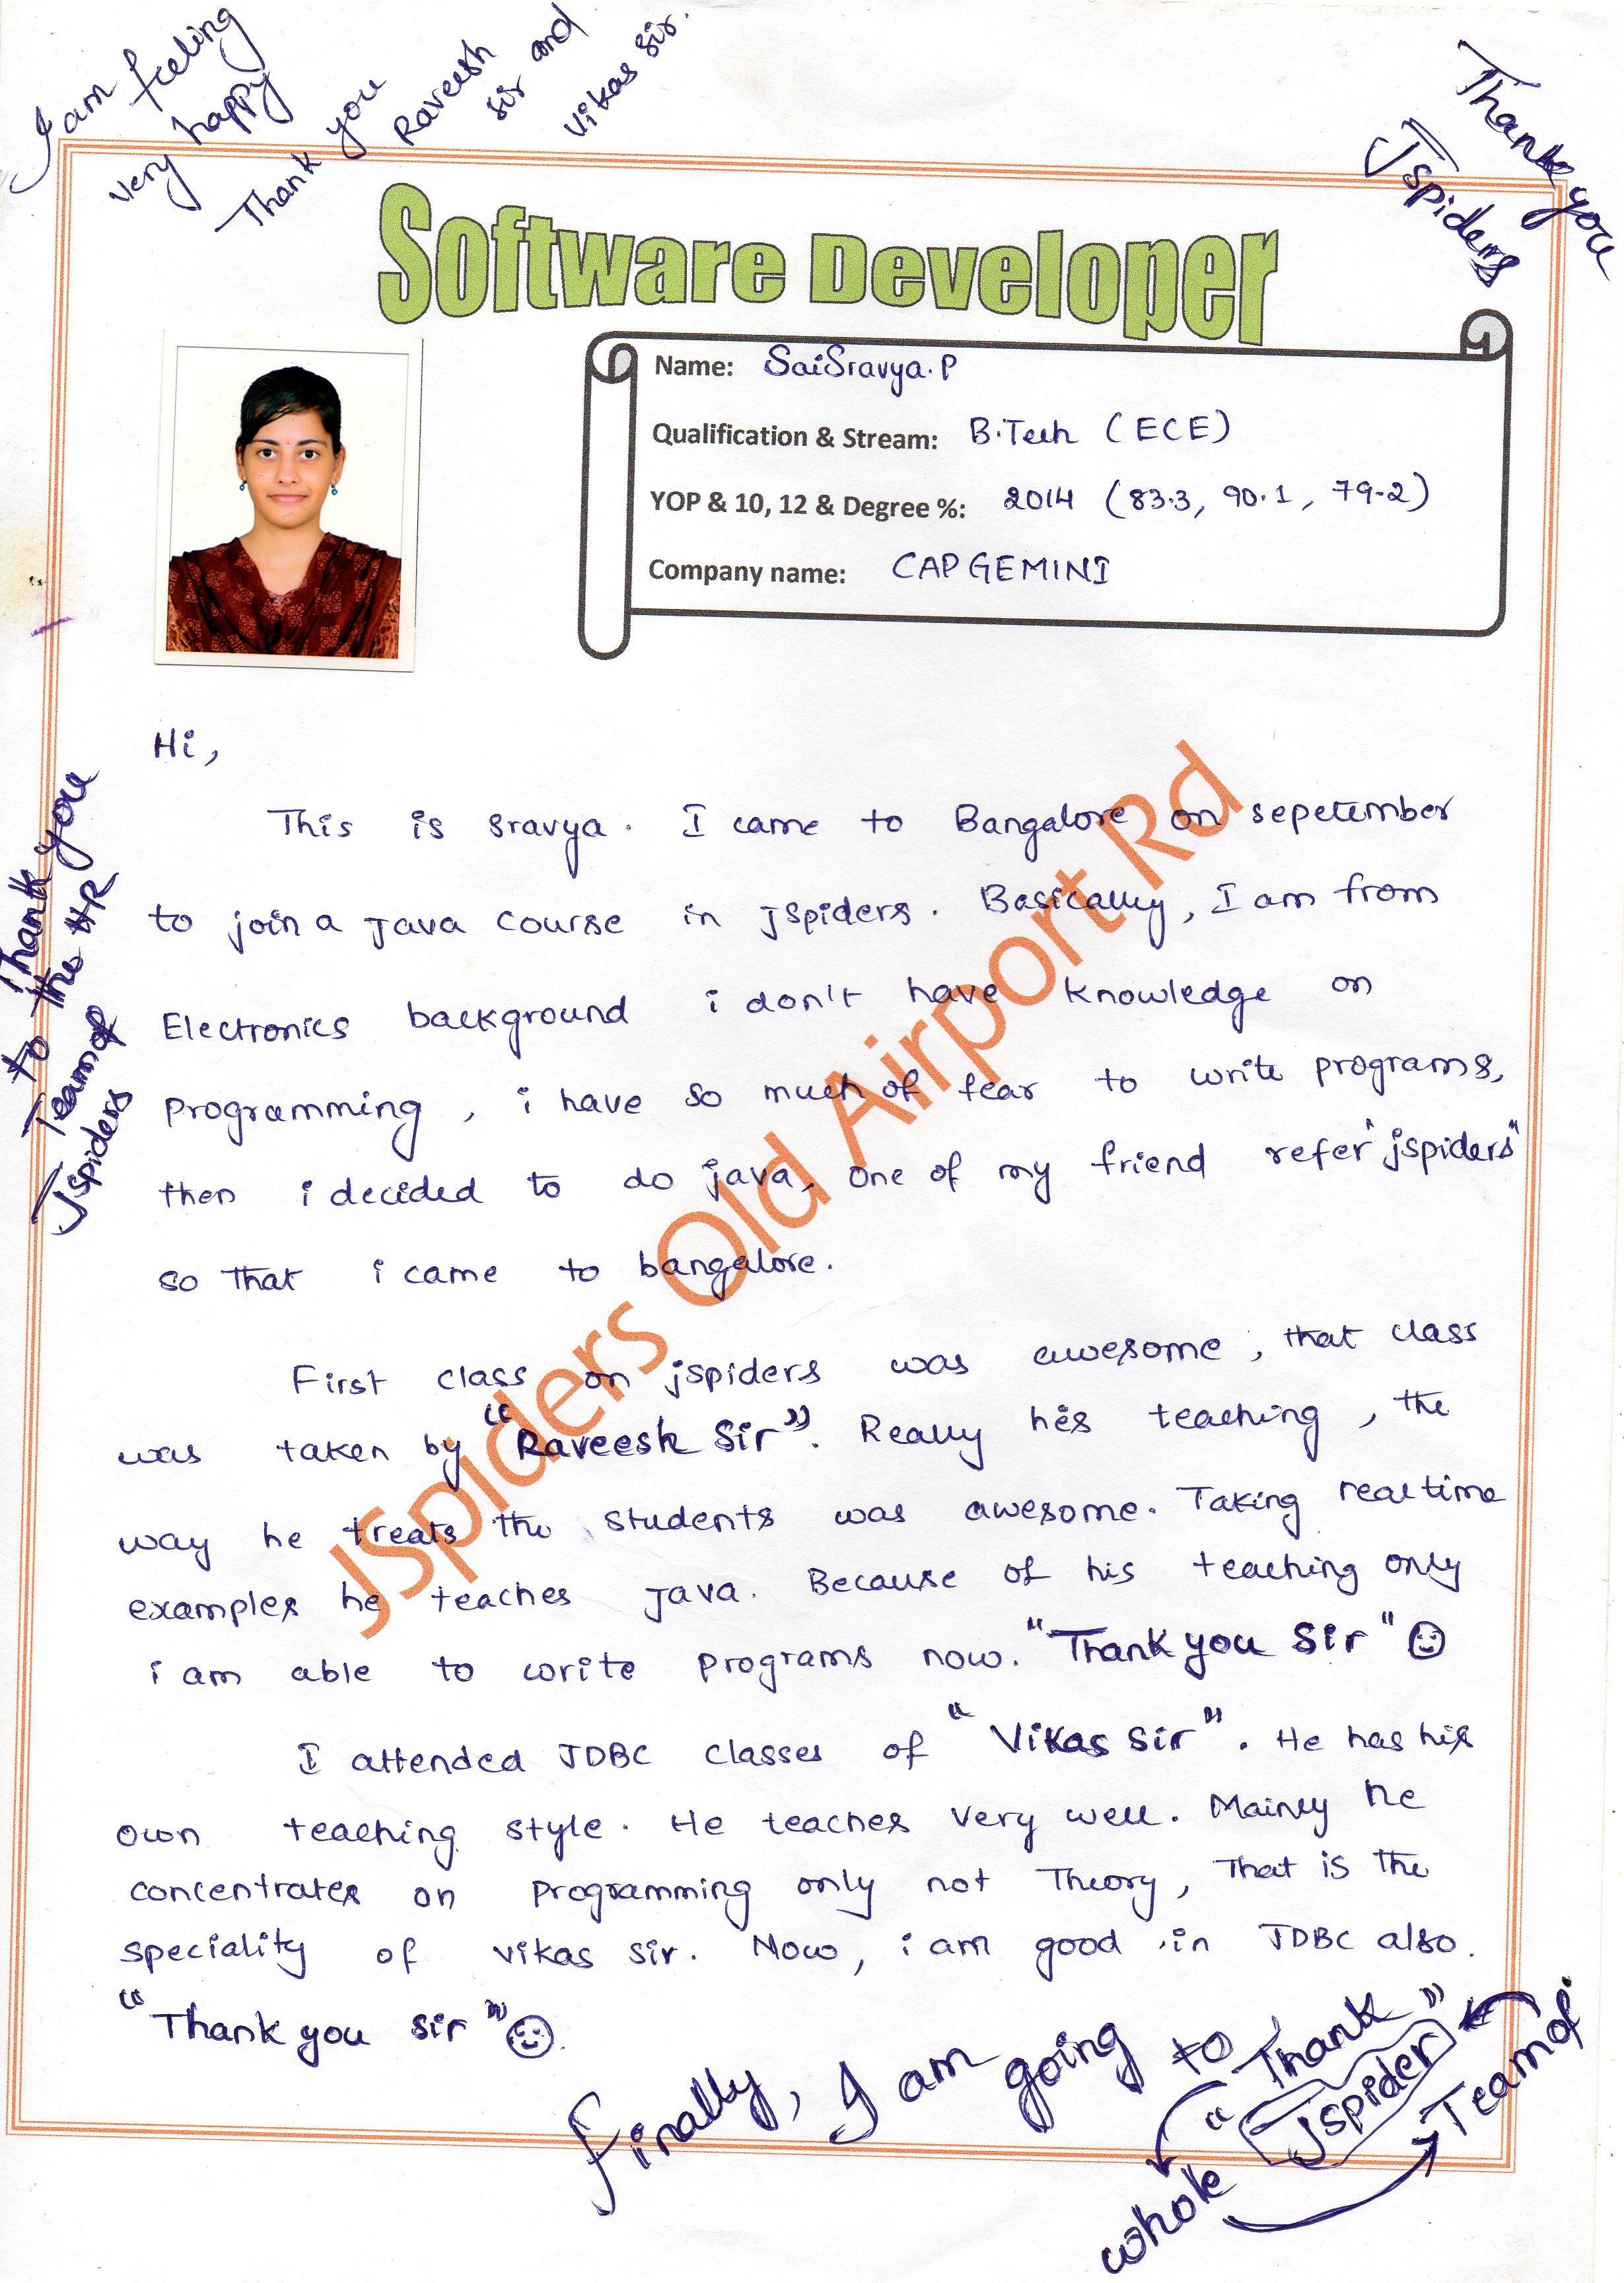 I am feeling
very happy
Thank you
Raveesh
sir and
Vikas sir.
Thank you
Jspiders
Software Developer
Name: SaiSravya.P
Qualification & Stream: B.Tech (ECE)
YOP & 10, 12 & Degree %: 2014 (83.3, 90.1, 79.2)
Company name: CAPGEMINI
Hi,
This is sravya. I came to Bangalore on sepetember
to join a Java course in jspiders. Basically, I am from
Electronics background i don't have knowledge on
programming, i have so much of fear to write programs,
then i decided to do java, one of my friend refer "jspiders"
so that i came to bangalore.
First class on jspiders was awesome, that class
was taken by "Raveesh Sir". Really his teaching, the
way he treats the students was awesome. Taking realtime
examples he teaches Java. Because of his teaching only
i am able to write programs now. "Thank you Sir" ☺
I attended JDBC classes of "Vikas Sir". He has his
own teaching style. He teaches very well. Mainly he
concentrates on programming only not Theory, That is the
speciality of vikas sir. Now, i am good in JDBC also.
"Thank you sir" ☺
Thank you
to the HR
Team of
Jspiders
Finally, I am going to "Thank"
whole Team of
Jspider
JSpiders Old Airport Rd